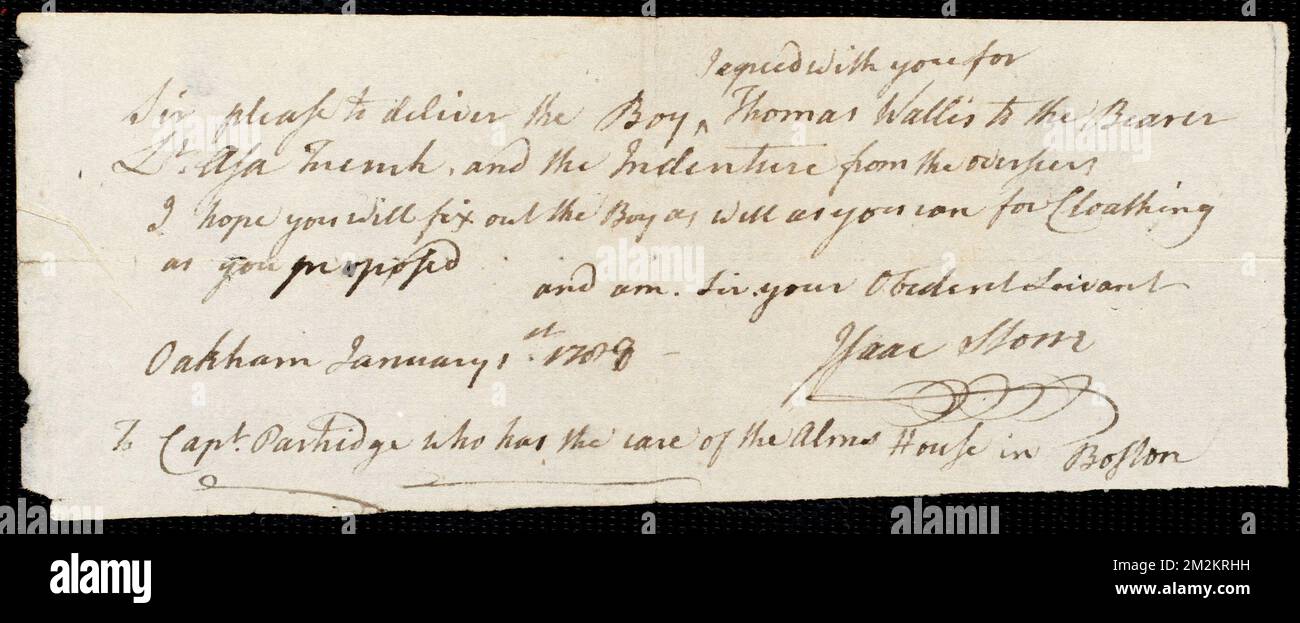 I egreed with you for
Sir please to deliver the Boy ^ Thomas Wallis to the Bearer
Lt. Asa French, and the Indenture from the overseers
I hope you will fix out the Boy as well as you can for Cloathing
as you proposed
and am. Sir. your Obedent Servant
Oakham January 1st. 1788 – Isaac Stone
To Capt. Partridge who has the care of the Alms House in Boston
alamy
alamy
Image ID: 2M2KRHH
www.alamy.com